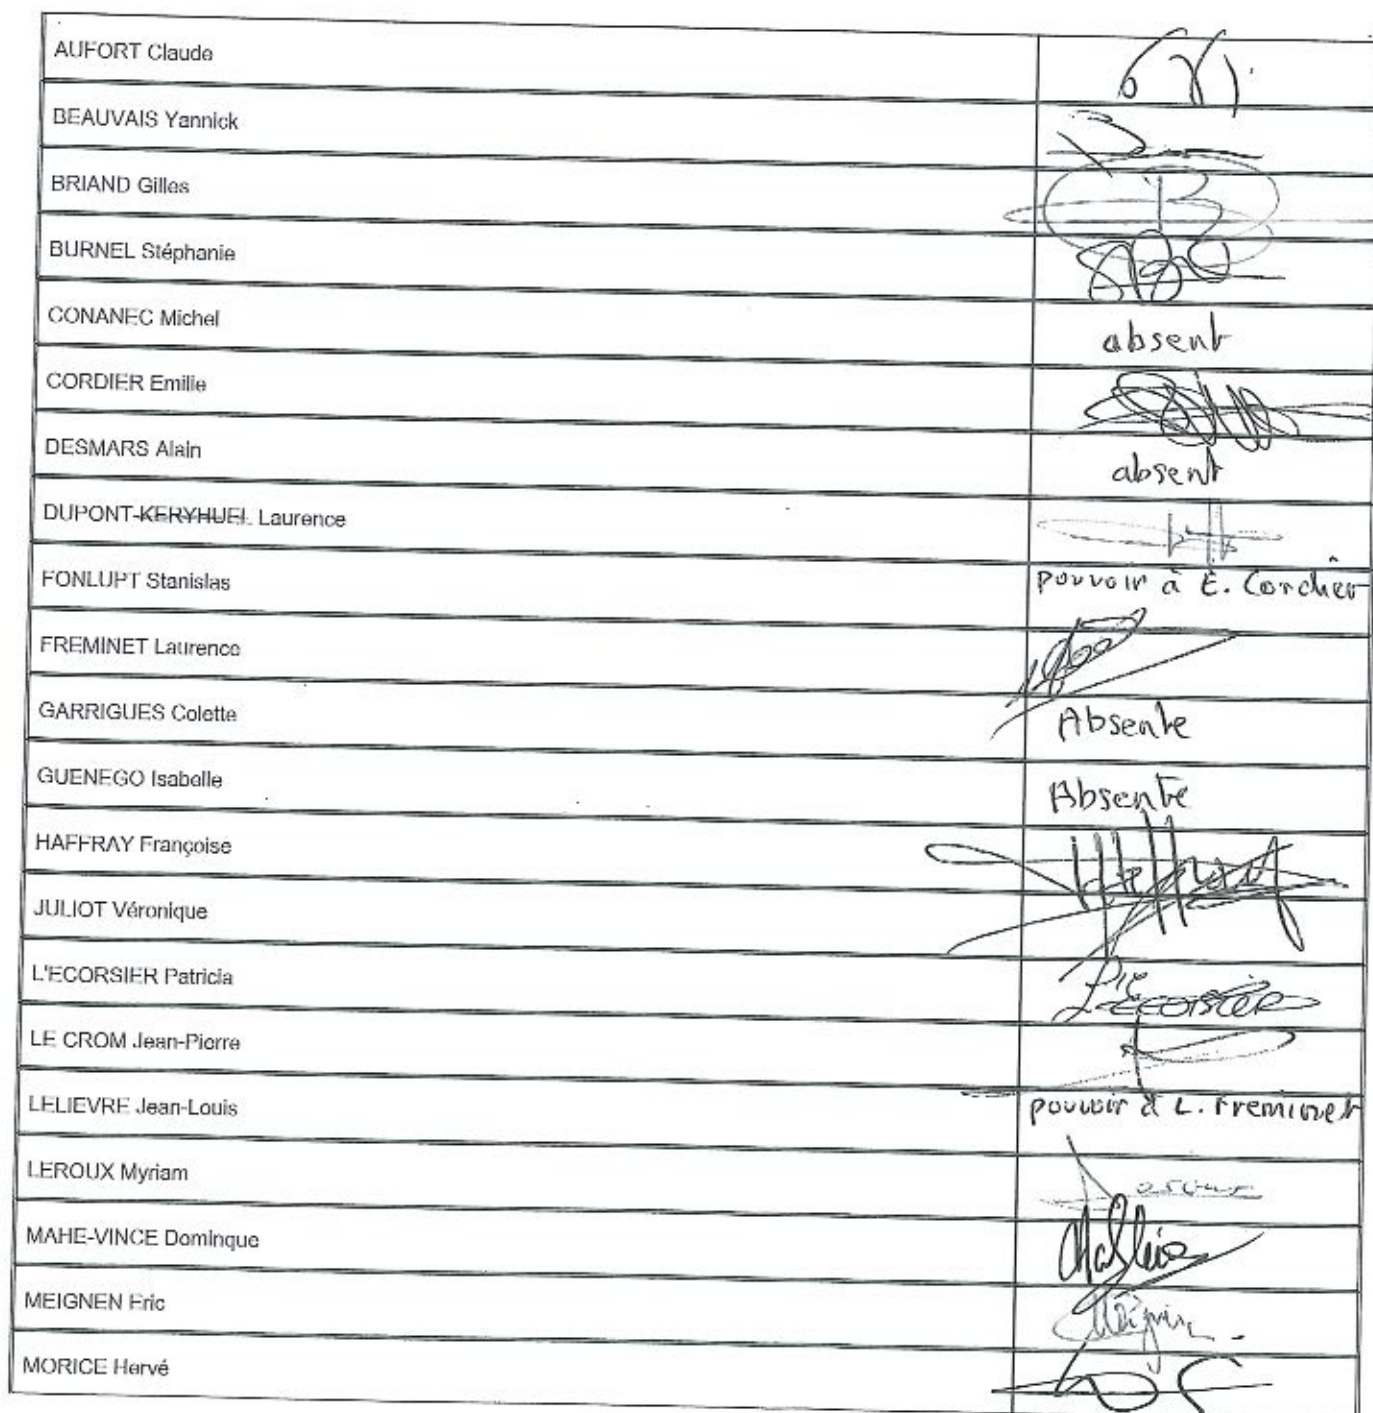 AUFORT Claude
BEAUVAIS Yannick
BRIAND Gilles
BURNEL Stéphanie
CONANEC Michel absent
CORDIER Emilie
DESMARS Alain absent
DUPONT-KERYHUEL Laurence
FONLUPT Stanislas pouvoir à E. Cordier
FREMINET Laurence
GARRIGUES Colette Absente
GUENEGO Isabelle Absente
HAFFRAY Françoise
JULIOT Véronique
L'ECORSIER Patricia
LE CROM Jean-Pierre
LELIEVRE Jean-Louis pouvoir à L. Freminet
LEROUX Myriam
MAHE-VINCE Dominque
MEIGNEN Eric
MORICE Hervé